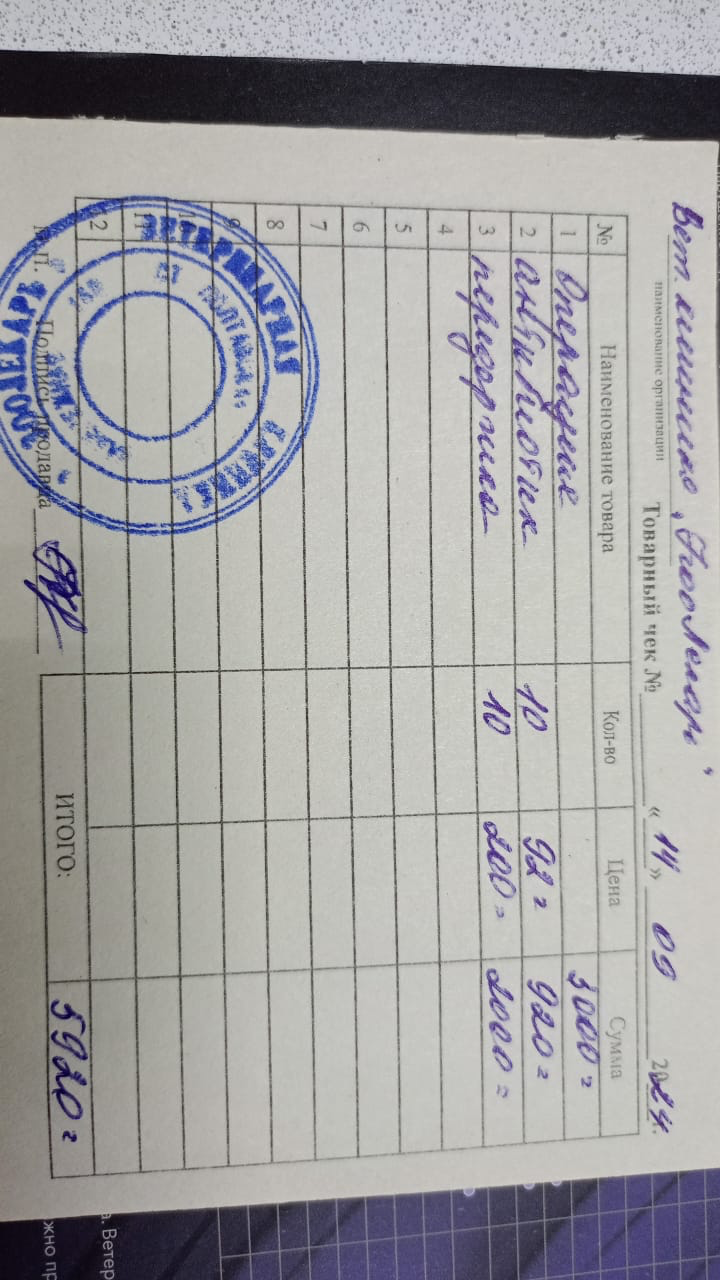 Вет. клиника "ЗооЛекарь"
наименование организации
Товарный чек № «14» 09 2024г.
№ Наименование товара Кол-во Цена Сумма
1 Операция 3000=
2 антибиотик 10 92= 920=
3 передержка 10 200= 2000=
4
5
6
7
8
9
11
12
ИТОГО: 5920=
М.П. Подпись продавца
ВЕТЕРИНАРНАЯ КЛИНИКА
ЗООЛЕКАРЬ
а. Ветер
жно пр